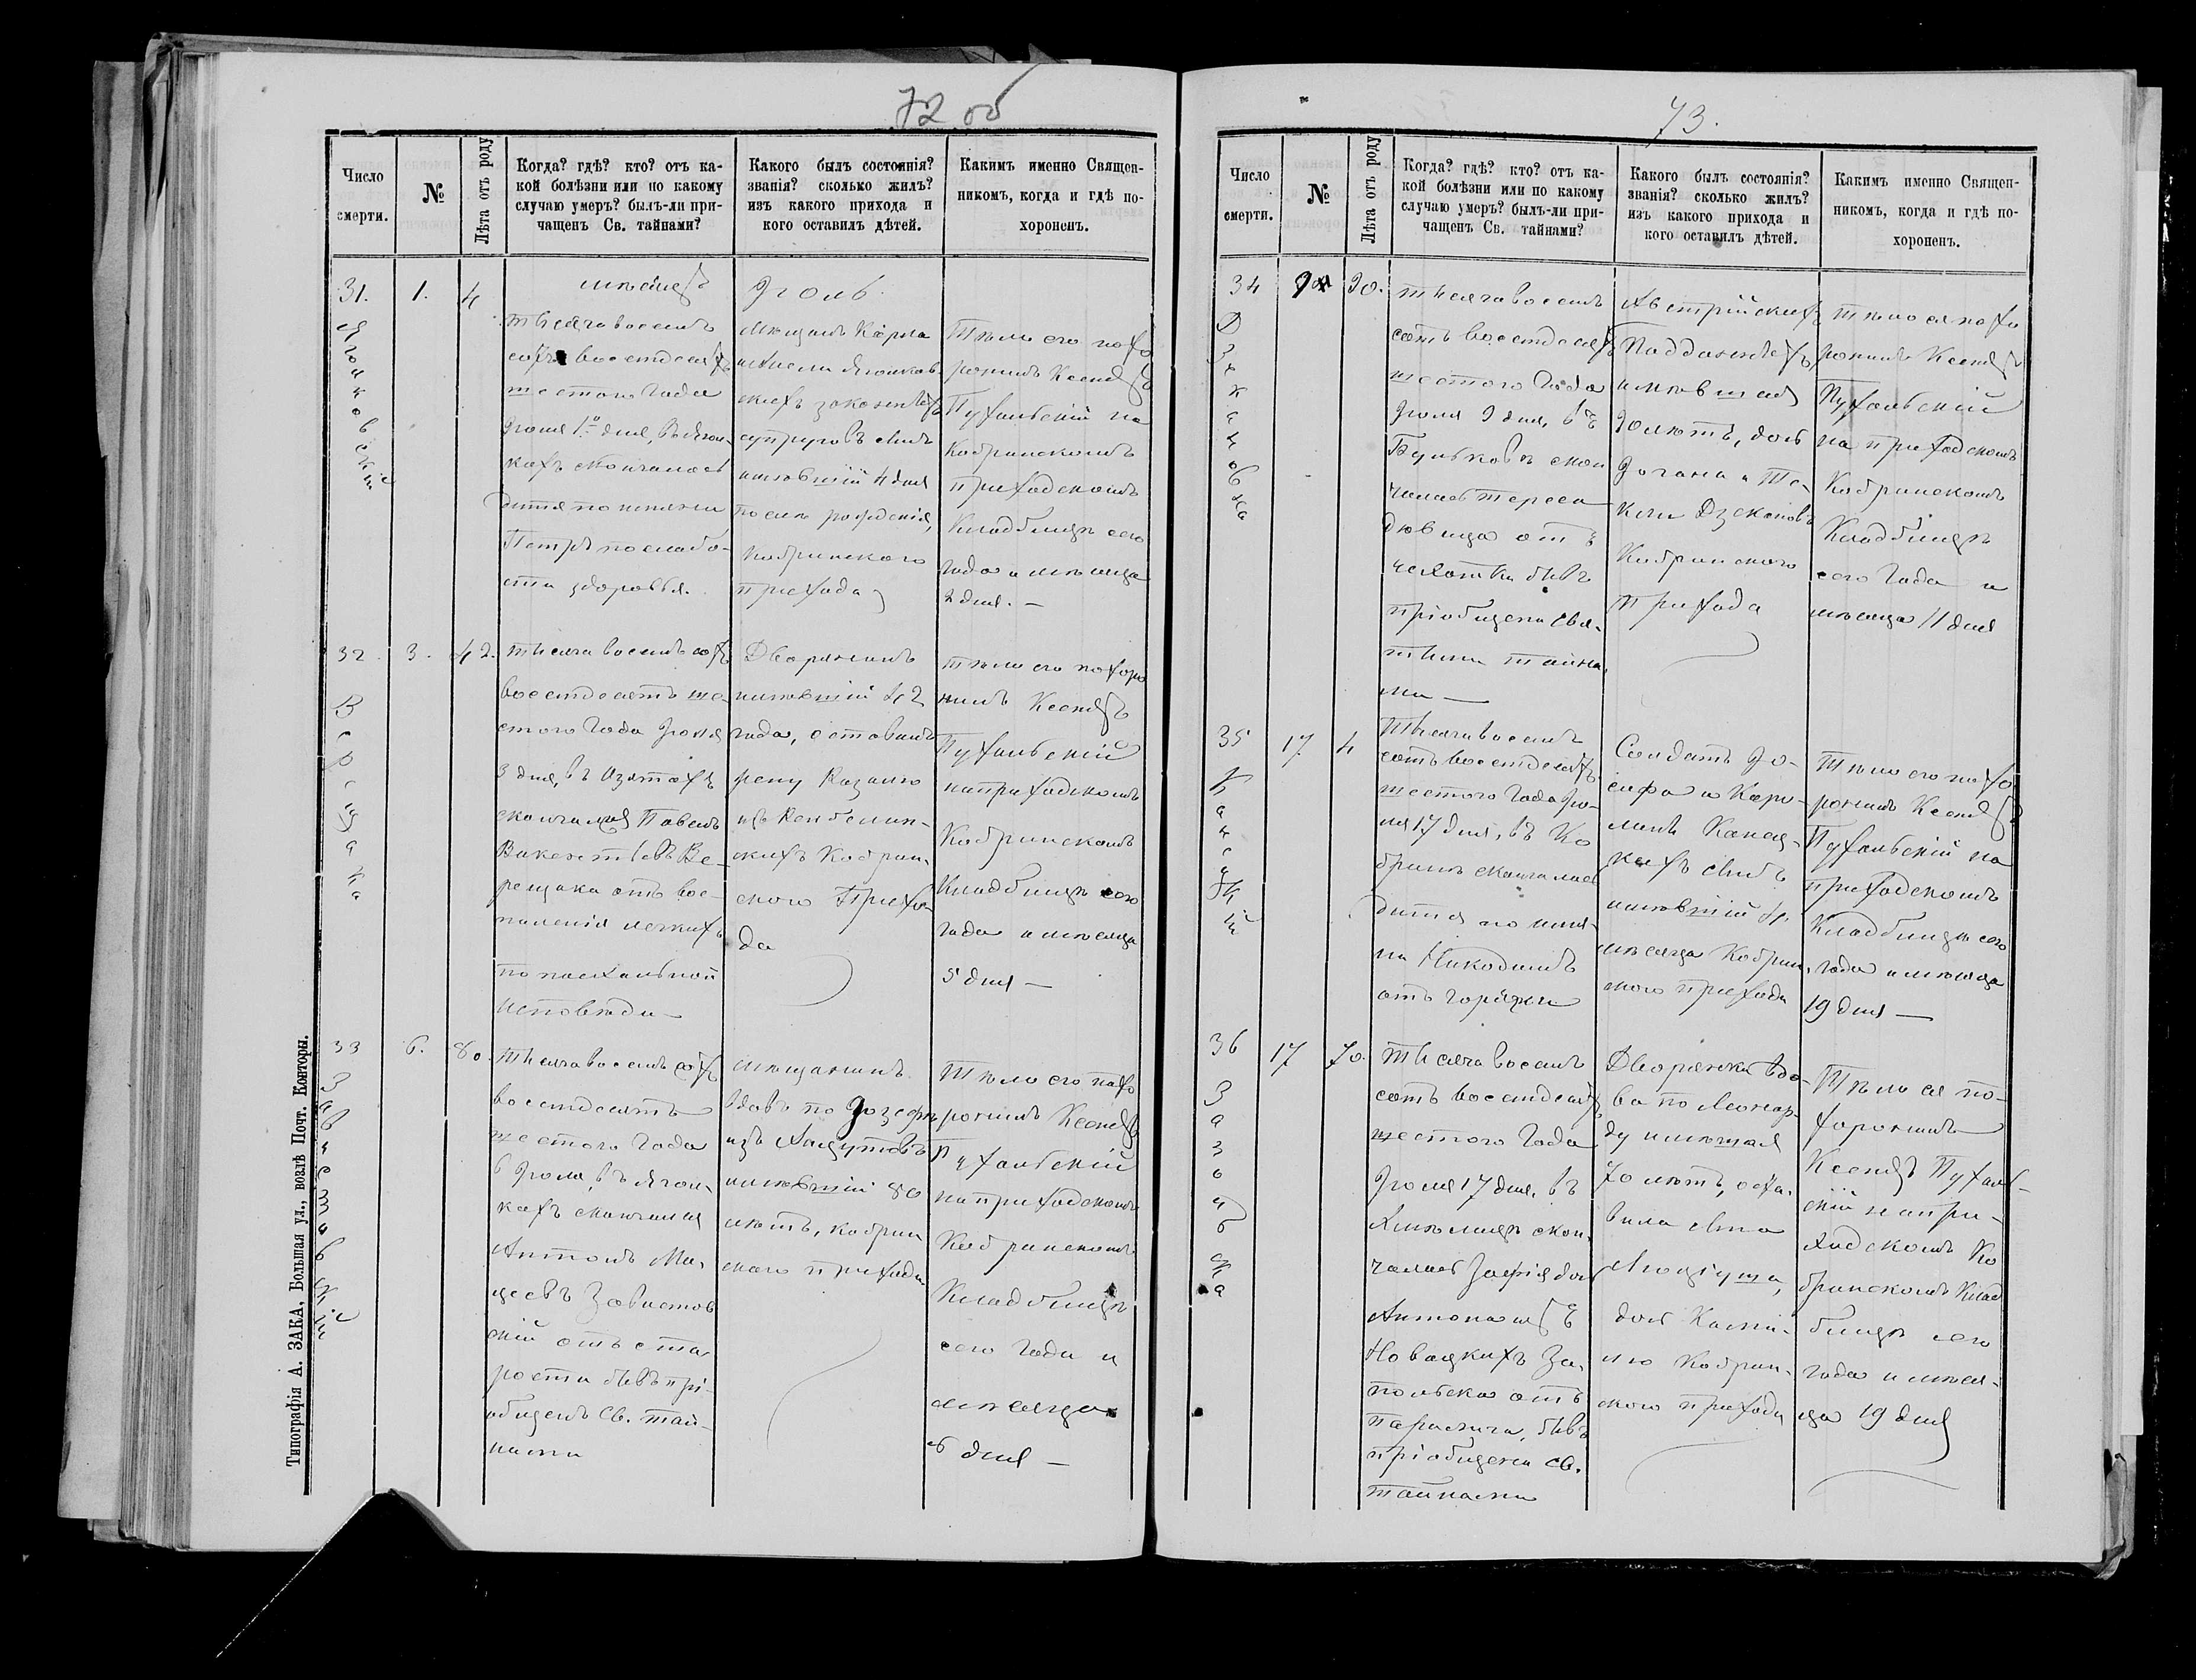 72 об
Число
смерти.
№
Лѣта отъ роду
Когда? гдѣ? кто? отъ ка-
кой болѣзни или по какому
случаю умеръ? былъ-ли при-
чащенъ Св. тайнами?
Какого былъ состоянія?
званія? сколько жилъ?
изъ какого прихода и
кого оставилъ дѣтей.
Какимъ именно Священ-
никомъ, когда и гдѣ по-
хороненъ.
31.
1.
4
мѣсяцъ
Іюль
тысяча восемь
сотъ восемдесятъ
шестого года
Іюля 1го дня, въ
скончалось
дитя по имени
Петръ по слабо-
сти здоровья.
Мѣщанъ Карла
законныхъ
супруговъ сынъ
имѣвшій 4 дня
после рожденія,
Кобринского
прихода
Тѣло его похо
ронилъ Ксендзъ
Пухальскій на
Кобринскомъ
приходскомъ
Кладбищѣ сего
года и мѣсяца
2 дня. —
32
3.
42.
Верещака
тысяча восемь сотъ
восемдесятъ ше-
стого года Іюля
3 дня, въ
скончался Павелъ
Викентьевъ Ве-
рещака отъ вос-
паленія легкихъ
по пасхальной
исповѣди —
Дворянинъ
имѣвшій 42
года, оставилъ
жену
изъ
скихъ Кобрин-
ского Прихо-
да
тѣло его похоро
нилъ Ксендзъ
Пухальскій
на приходскомъ
Кобринскомъ
Кладбищѣ сего
года и мѣсяца
5 дня —
33
6.
80.
тысяча восемь сотъ
восемдесятъ
шестого года
6 Іюля, въ
скончался
Антонъ Ма-
цеевъ Завистов
скій отъ ста-
рости бывъ прі-
общенъ Св. тай-
нами
мѣщанинъ
вдовъ по Іозефѣ
изъ
имѣвшій 80
лѣтъ, кобрин
ского прихода
Тѣло его похо
ронилъ Ксендзъ
Пухальскій
на приходскомъ
Кобринскомъ
Кладбищѣ
сего года и
мѣсяца
дня —
Типографія А. ЗАКА, Большая ул., возлѣ Почт. Конторы.
73.
Число
смерти.
№
Лѣта отъ роду
Когда? гдѣ? кто? отъ ка-
кой болѣзни или по какому
случаю умеръ? былъ-ли при-
чащенъ Св. тайнами?
Какого былъ состоянія?
званія? сколько жилъ?
изъ какого прихода и
кого оставилъ дѣтей.
Какимъ именно Священ-
никомъ, когда и гдѣ по-
хороненъ.
34
9
30.
тысяча восемь
сотъ восемдесятъ
шестого года
Іюля 9 дня, въ
скон
чалась Тереса
дѣвица отъ
чахотки бывъ
пріобщена Свя-
тыми тайна-
ми —
Австрійскихъ
Подданныхъ
имѣвшая
30 лѣтъ, дочь
Кобринского
Прихода
тѣло ея похо
ронилъ Ксендзъ
Пухальскій
на приходскомъ
Кобринскомъ
Кладбищѣ
сего года и
мѣсяца 11 дня
35
17
4
Тысяча восемь
сотъ восемдесятъ
шестого года Ію-
ля 17 дня, въ Ко
бринѣ скончалось
дитя по име-
ни Никодимъ
отъ горячки
Солдатъ Іо-
сифа и Каро-
лины
сынъ
имѣвшій 4
мѣсяца Кобрин-
ского прихода
Тѣло его похо
ронилъ Ксендзъ
Пухальскій на
приходскомъ
Кладбищѣ сего
года и мѣсяца
19 дня —
36
17
70.
тысяча восемь
сотъ восемдесятъ
шестого года
Іюля 17 дня, въ
скон-
чалась Зофія дочь
Антона изъ
Новацкихъ За-
польска отъ
паралича, бывъ
пріобщена св.
тайнами
Дворянка вдо-
ва по Леонар-
ду имѣвшая
70 лѣтъ, оста-
вила сына
дочь
Кобрин-
ского прихода
Тѣло ея по-
хоронилъ
Ксендзъ Пухаль-
скій на при-
ходскомъ Ко
бринскомъ Клад
бищѣ сего
года и мѣся-
ца 19 дня